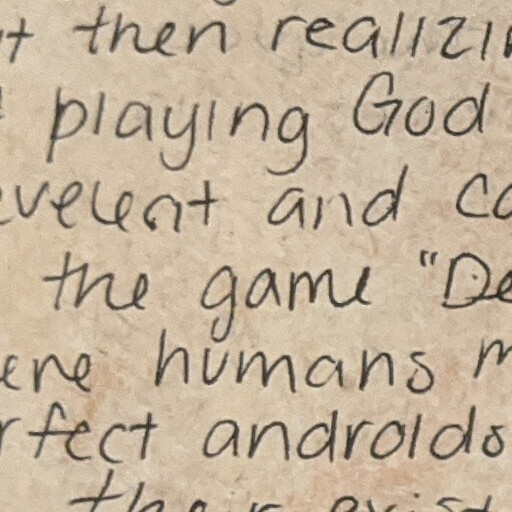 then realizin
playing God
and co
the game "De
humans m
rfect androids